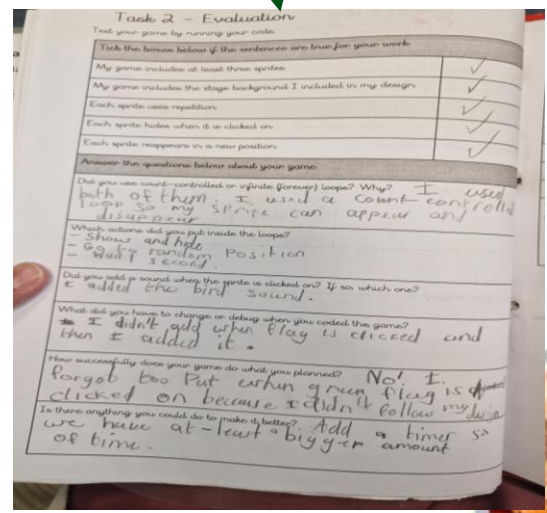 Task 2 - Evaluation
Test your game by running your code.
Tick the boxes below if the sentences are true for your work
My game includes at least three sprites
My game includes the stage background I included in my design
Each sprite uses repetition
Each sprite hides when it is clicked on
Each sprite reappears in a new position
Answer the questions below about your game
Did you use count-controlled or infinite (forever) loops? Why? I used
both of them. I used a count controlld
loop so my sprite can appear and
disappear
Which actions did you put inside the loops?
- Show and hide
- Go to random Position
- Wait 1 second.
Did you add a sound when the sprite is clicked on? If so, which one?
I added the bird sound.
What did you have to change or debug when you coded the game?
- I didn't add when flag is clicked and
then I added it.
How successfully does your game do what you planned? No! I
forgot too Put when green flag is
clicked on because I didn't follow my design
Is there anything you could do to make it better? Add a timer so
we have at-least a bigger amount
of time.